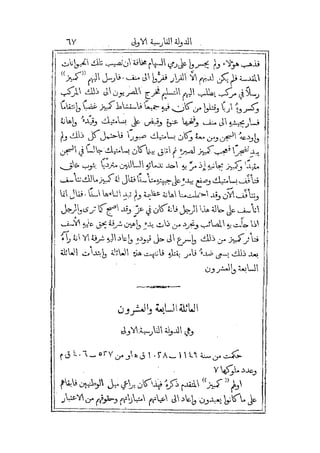 الدولة الفارسية الاولى ٦٧
فذهب هؤلاء ولم يجسروا على رمي السهام مخافة ان تصيب تلك الحيوانات
المقدسة فلم يكن لديهم الا الفرار ففروا الى منف. فارسل اليهم "كمبيز"
رسلاً في مركب يطلب اليهم التسليم فخرج المصريون الى ذلك المركب
وكسروه اربًا وقتلوا من كان فيه جميعًا فاستشاط كمبيز غضبًا وانتقامًا
فسار بجيشه الى منف وفتحها عنوة وقبض على بسامتيك وقيده واهانه
واودعه السجن ومن معه وكان بسامتيك صبورًا فاحتمل كل ذلك ولم
يبد ضجرًا فعجب كمبيز لصبره ثم اتفق بينما كان بسامتيك جالسًا في السجن
مقيدًا وكمبيز بجانبه اذ مر به احد ندمائه السالفين مرتديًا بثوب خلق
فتأسف بسامتيك وصفع بيده على جبينه متأسفًا فقال له كمبيز مالك تتأسف
وتتأفف الآن وقد احتملت منا اهانة عظيمة ولم تبد اثناءها اسفًا. فقال انما
أتأسف على حالة هذا الرجل فانه كان في عز وقد اصبح كما ترى والرجل
اذا حلت به المصائب وتجرد من ذات يده واهين شرفه يحق عليه الاسف
فتأثر كمبيز من ذلك واسرع الى حل قيوده واعاد اليه شرفه الا انه رآه
بعد ذلك يسعى ضده فامر بقتله فانتهت هذه العائلة وابتدأت العائلة
السابعة والعشرون
العائلة السابعة والعشرون
وهي الدولة الفارسية الاولى
حكمت من سنة ١١٤٩ — ١٠٢٨ ق ه او من ٥٢٧ — ٤٠٦ ق م
وعدد ملوكها ٧
اولهم "كمبيز" المتقدم ذكره فهذا كان يراعي ميل الوطنيين فابقاهم
على ما كانوا يعبدون واعاد الى اعيانهم امتيازاتهم وحقوقهم من الاعتبار